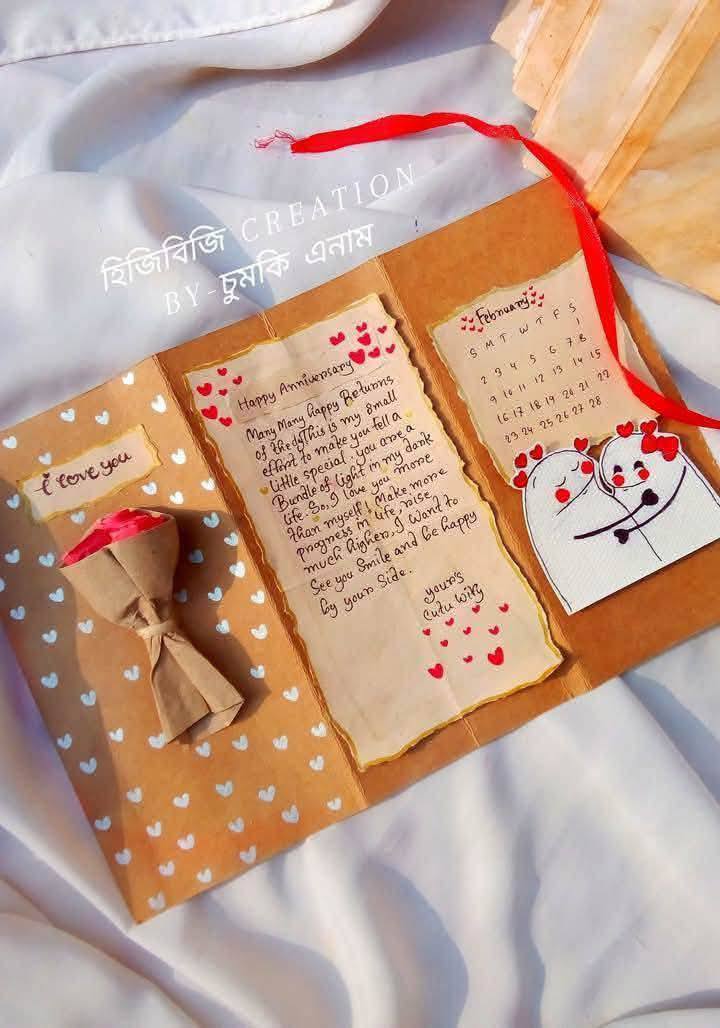 হিজিবিজি CREATION
BY-চুমকি এনাম
I love you
Happy Anniversary
Many Many happy Returns
of the day This is my small
effort to make you fell a
little special. you are a
Bundle of light in my dark
life. So, I love you more
than myself! Make more
progress in life, rise
much higher, I want to
See you Smile and be happy
by your Side.
your's
Cutu wify
February
S M T W T F S
1
2 3 4 5 6 7 8
9 10 11 12 13 14 15
16 17 18 19 20 21 22
23 24 25 26 27 28